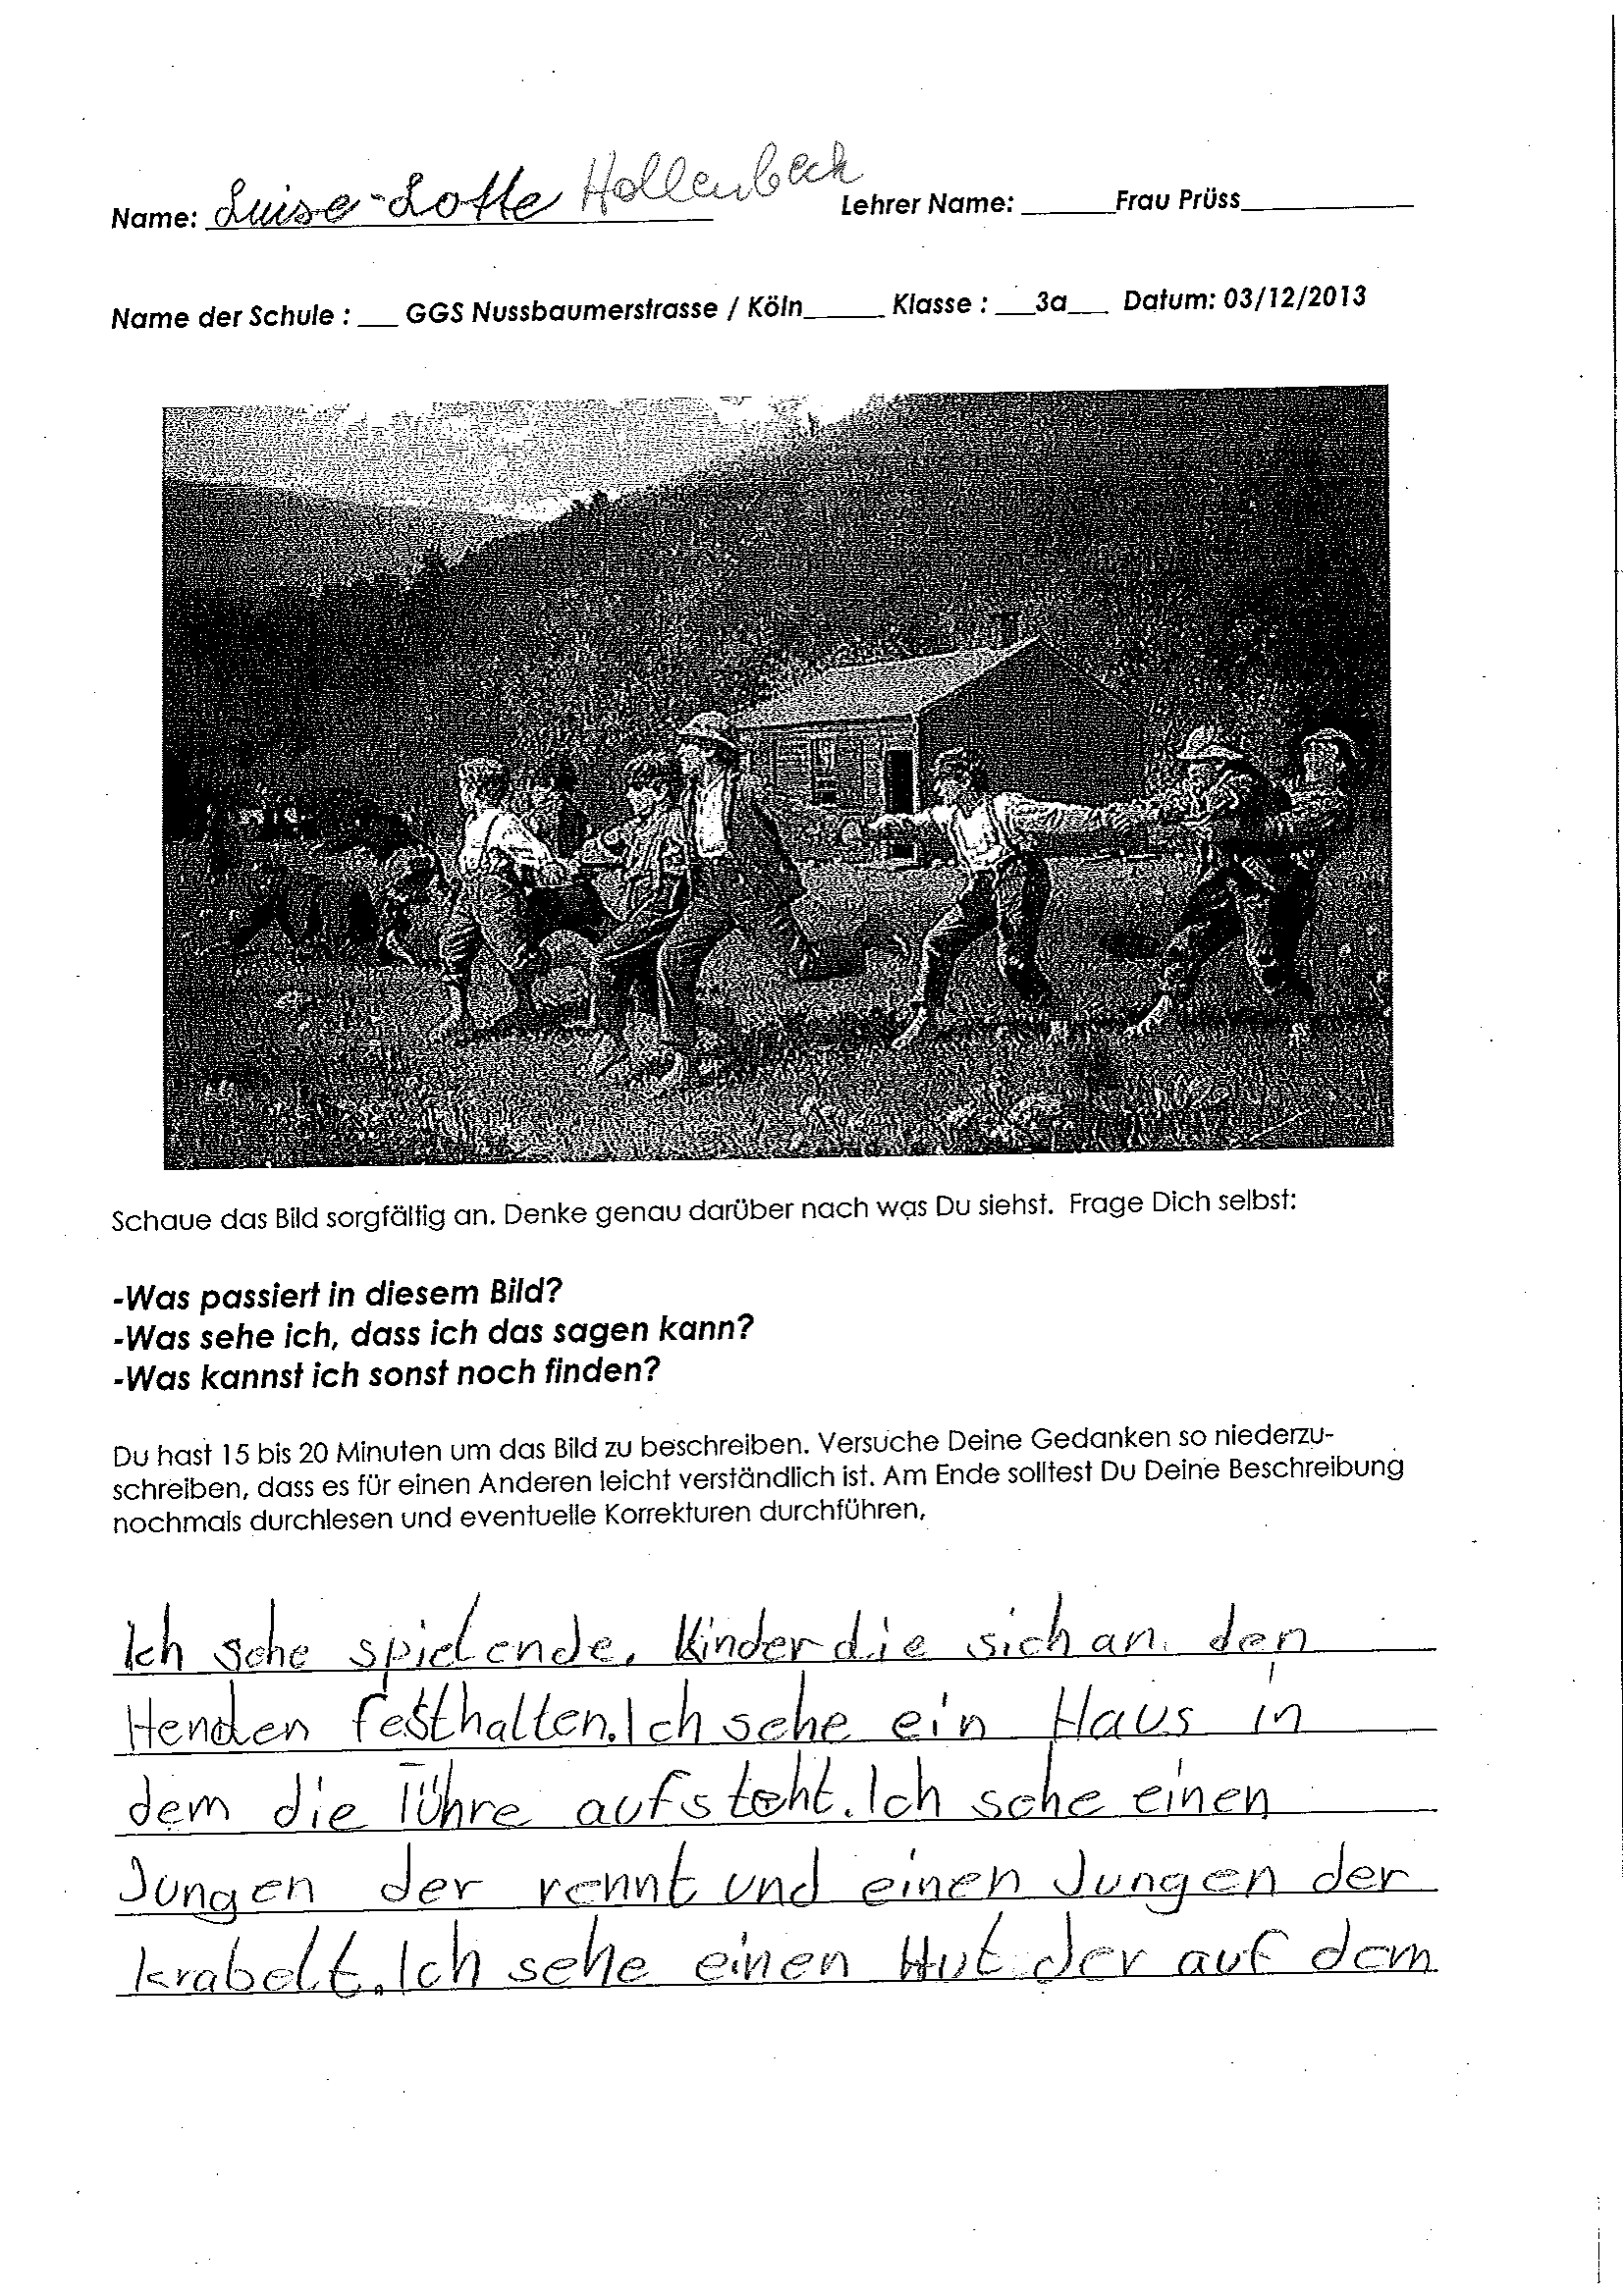 Name: Luise-Lotte Hollenbeck Lehrer Name: ______Frau Prüss___________
Name der Schule : ___ GGS Nussbaumerstrasse / Köln______ Klasse : ___3a___ Datum: 03/12/2013
Schaue das Bild sorgfältig an. Denke genau darüber nach was Du siehst. Frage Dich selbst:
-Was passiert in diesem Bild?
-Was sehe ich, dass ich das sagen kann?
-Was kannst ich sonst noch finden?
Du hast 15 bis 20 Minuten um das Bild zu beschreiben. Versuche Deine Gedanken so niederzu-
schreiben, dass es für einen Anderen leicht verständlich ist. Am Ende solltest Du Deine Beschreibung
nochmals durchlesen und eventuelle Korrekturen durchführen,
Ich sehe spielende, Kinder die sich an den
Henden festhalten. Ich sehe ein Haus in
dem die Tühre aufsteht. Ich sehe einen
Jungen der rennt und einen Jungen der
krabelt. Ich sehe einen Hut der auf dem